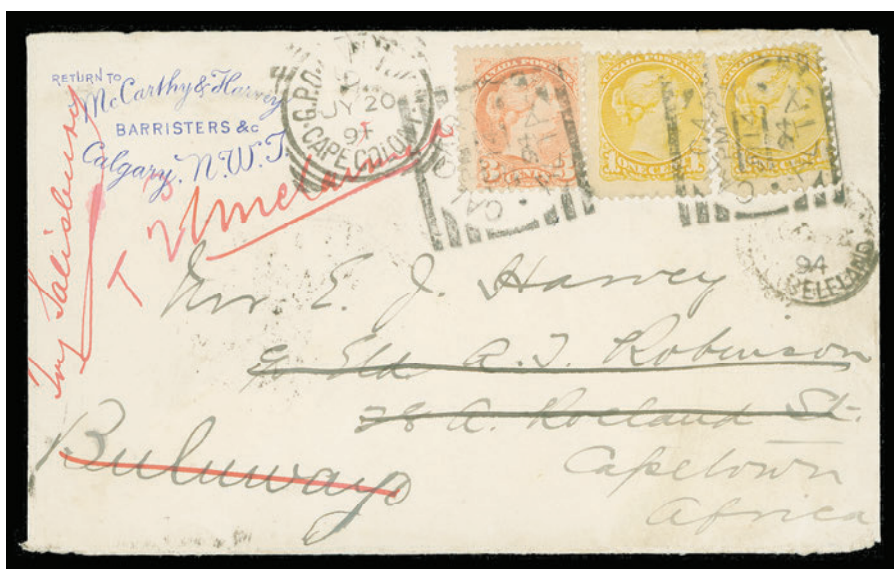 RETURN TO
McCarthy & Harvey
BARRISTERS &c
Calgary, N.W.T.
G.P.O.
JY 20
CAPE COLONY
CANADA POSTAGE
CANADA POSTAGE
CANADA POSTAGE
ONE CENT
94
BELELAND
Try Salisbury
T
Unclaimed
Mr E. J. Harvey
c/o Eld. A. T. Robinson
28 A. Roeland St.
Capetown
Africa
Buluwayo